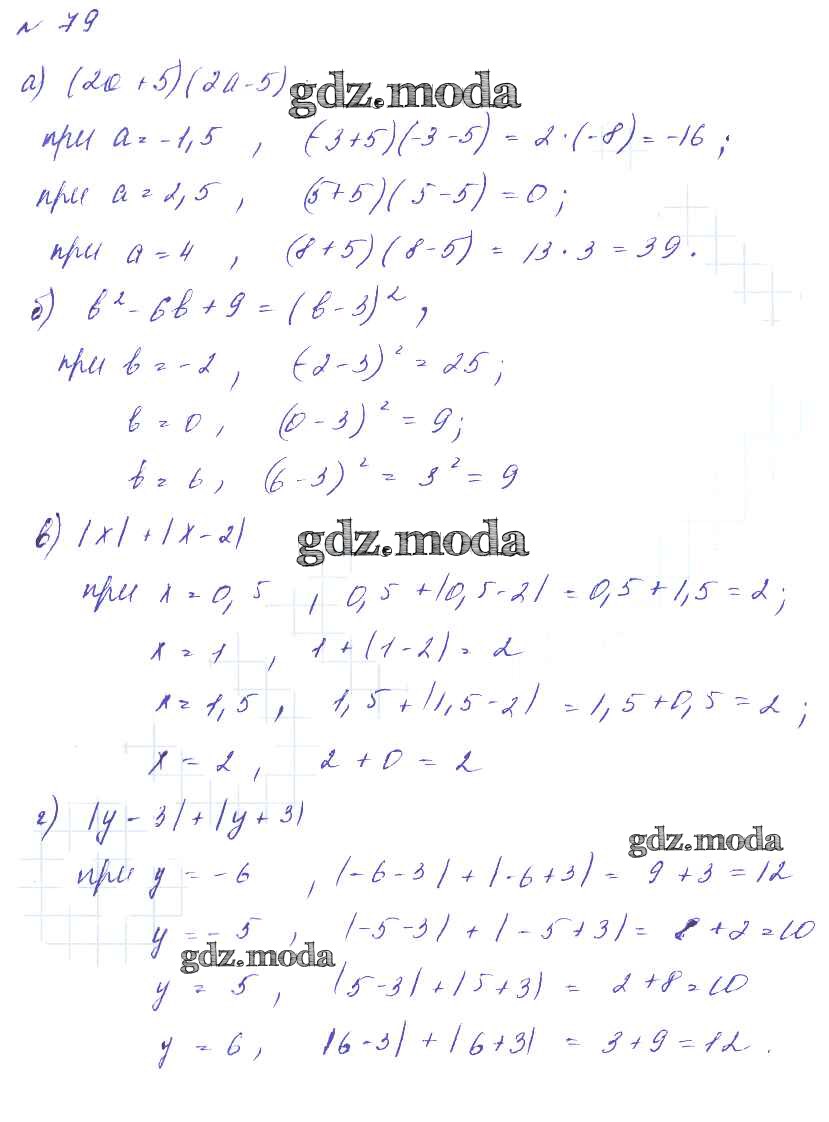 № 79
а) (2a + 5)(2a - 5)
gdz.moda
при a = -1,5 , (-3+5)(-3-5) = 2·(-8) = -16 ;
при a = 2,5 , (5+5)(5-5) = 0 ;
при a = 4 , (8+5)(8-5) = 13·3 = 39 .
б) b² - 6b + 9 = (b - 3)² ,
при b = -2 , (-2-3)² = 25 ;
b = 0 , (0-3)² = 9 ;
b = 6 , (6-3)² = 3² = 9
в) |x| + |x-2|
gdz.moda
при x = 0,5 , 0,5 + |0,5-2| = 0,5 + 1,5 = 2 ;
x = 1 , 1 + |1-2| = 2
x = 1,5 , 1,5 + |1,5-2| = 1,5 + 0,5 = 2 ;
x = 2 , 2 + 0 = 2
г) |y - 3| + |y + 3|
gdz.moda
при y = -6 , |-6-3| + |-6+3| = 9 + 3 = 12
y = -5 , |-5-3| + |-5+3| = 8 + 2 = 10
gdz.moda
y = 5 , |5-3| + |5+3| = 2 + 8 = 10
y = 6 , |6-3| + |6+3| = 3 + 9 = 12 .